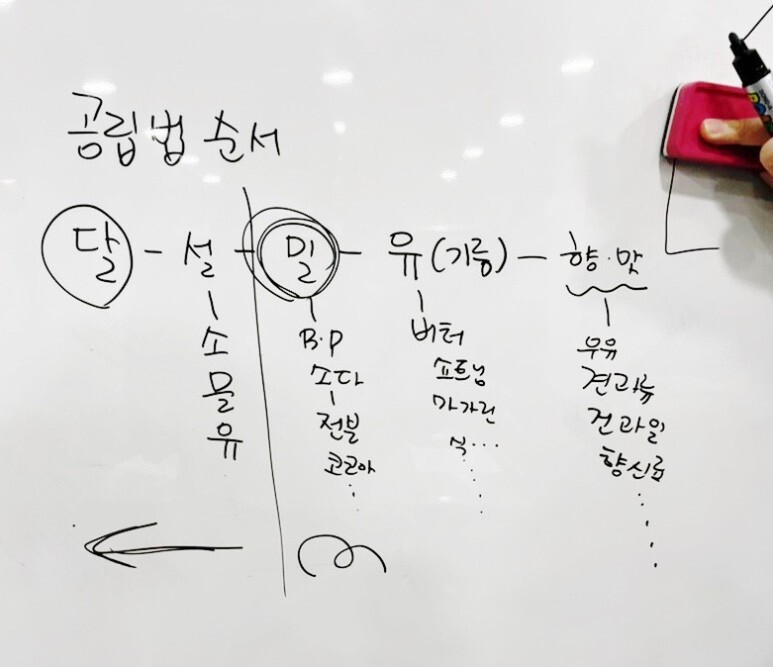 공립법 순서
달 - 설 - 밀 - 유(기름) - 향·맛
소
물
유
B.P
소다
전분
코코아
버터
쇼트닝
마가린
식...
우유
견과류
건과일
향신료